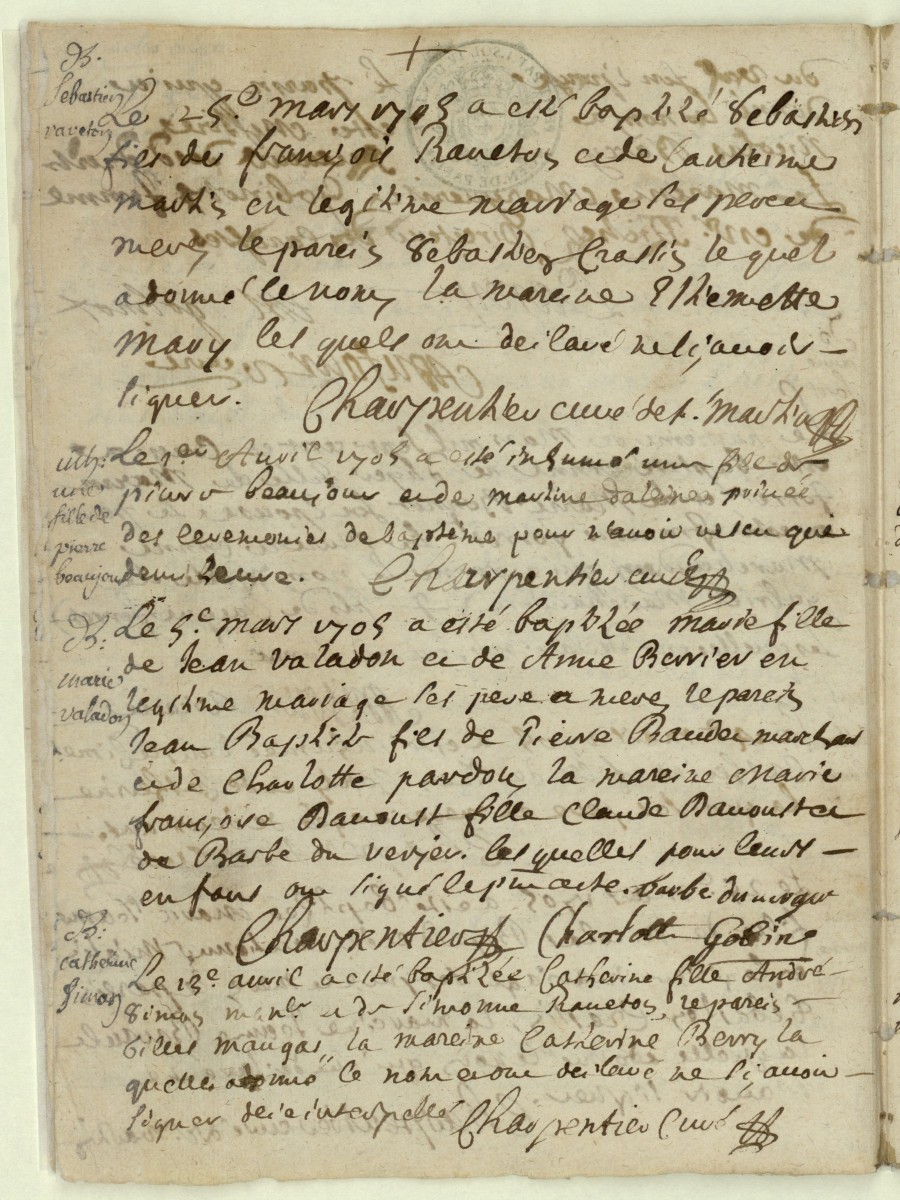 B.
Sebastien
raveton
Le 25e mars 1705 a esté baptizé Sebastien
fils de françois Raveton et de Catherine
martin en legitime mariage ses pere et
mere, le parein Sebastien Crassin le quel
a donné le nom, la mareine Ethiennette
mary les quels ont declaré ne sçavoir
signer.
Charpentier curé de st. Martin
inh:
une
fille de
pierre
beaujour
Le 1er Avril 1705 a esté inhumé une fille de
pierre beaujour et de martine daleine privée
des ceremonies de baptéme pour n'avoir vescu que
demi heure. Charpentier curé
B:
marie
valadon
Le 5e mars 1705 a esté baptizée marie fille
de Jean valadon et de Anne Berrier en
legitime mariage ses pere et mere, le parein
Jean Baptiste fils de Pierre Baudet marchant
et de Charlotte pardon, la mareine Marie
françoise Davoust fille Claude Davoust et
de Barbe du verjer. lesquelles pour leurs
enfans ont signé le pnt acte. barbe
Charpentier Charlotte Gobine
B:
catherine
Simon
Le 13e avril a esté baptizée Catherine fille André
Simon et de Simonne Raveton, le parein
Gilles maugas, la mareine Catherine Berry la
quelle a donné le nom et ont declaré ne sçavoir
signer de ce interpellé
Charpentier Curé